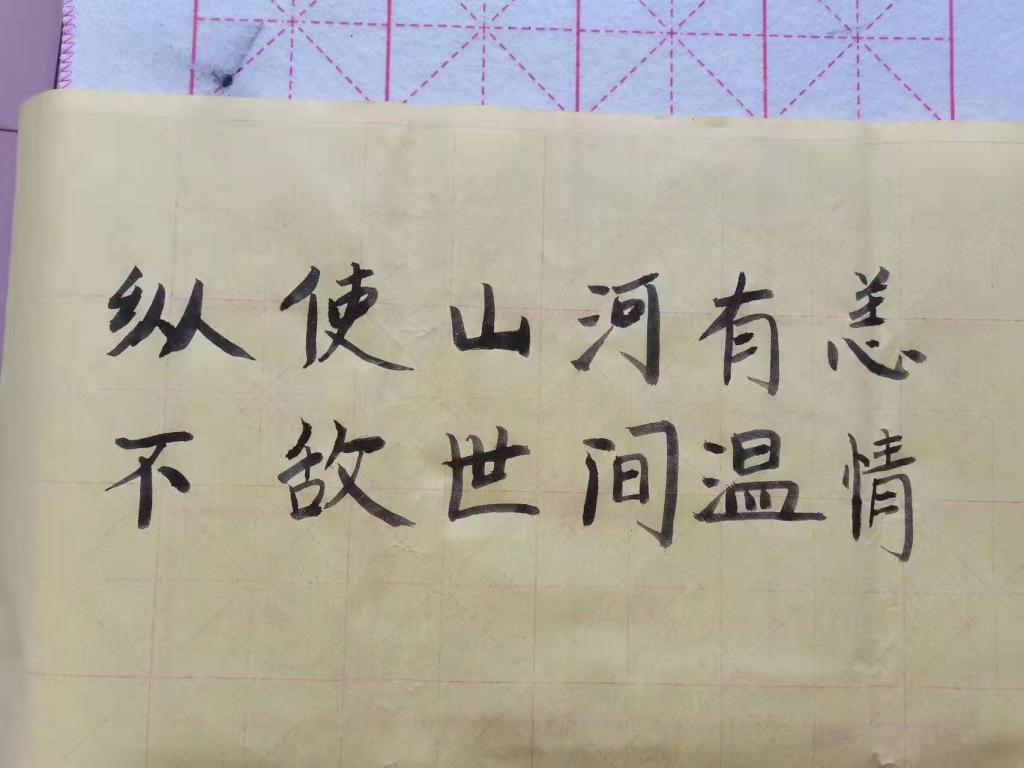 纵使山河有恙
不敌世间温情